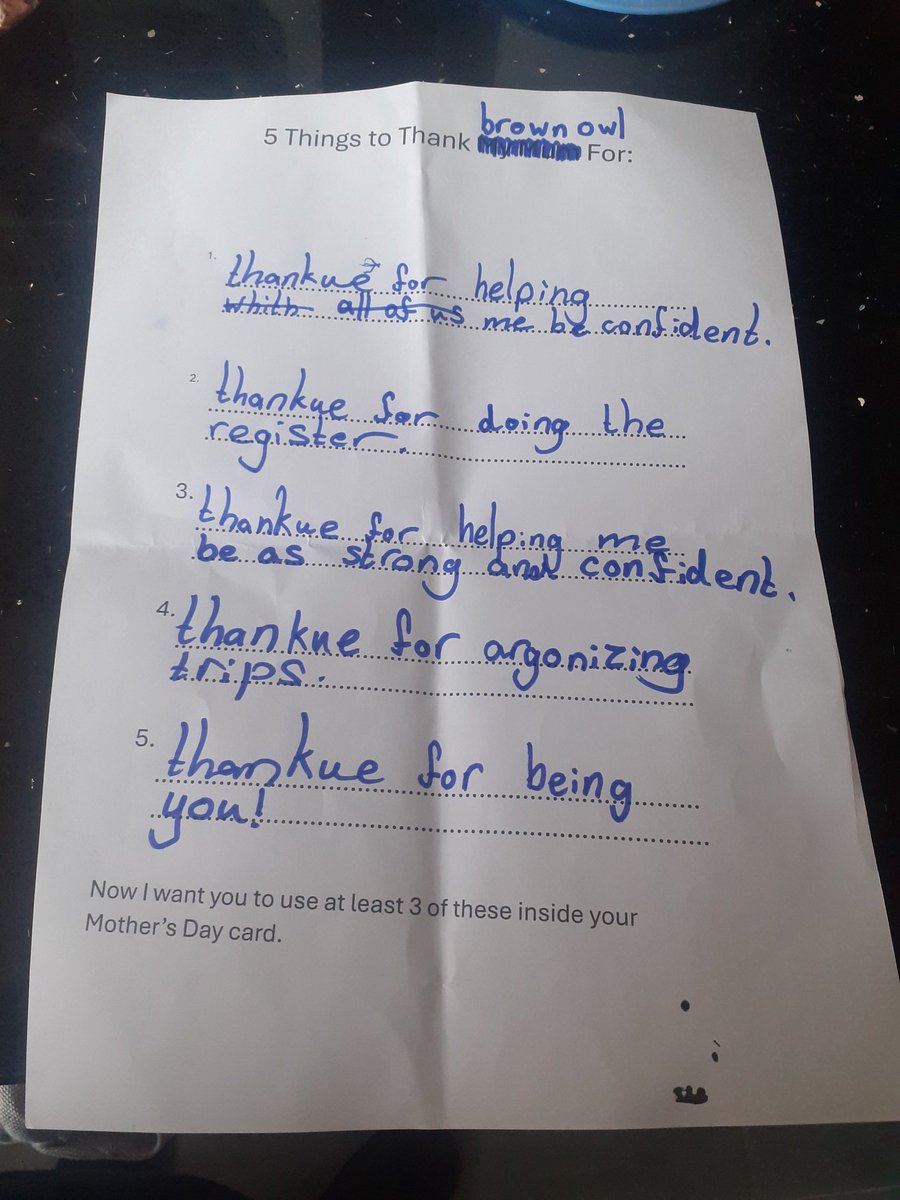 brown owl
5 Things to Thank For:
1.
thankue for helping
whith all of us me be confident.
2.
thankue for doing the
register.
3.
thankue for helping me
be as strong and confident.
4.
thankue for argonizing
trips.
5.
thankue for being
you!
Now I want you to use at least 3 of these inside your
Mother's Day card.